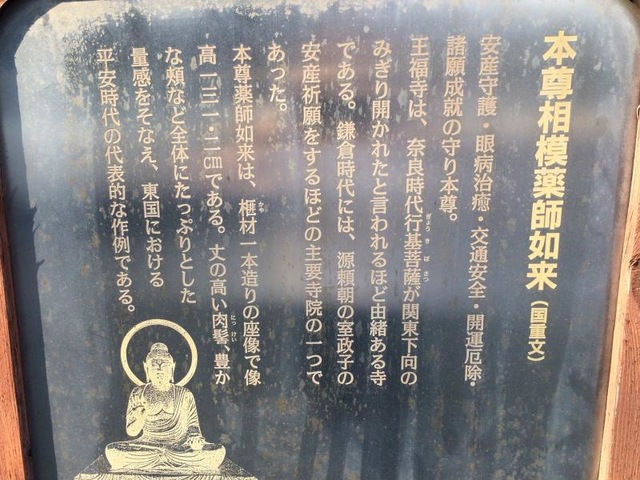 本尊相模薬師如来（国重文）
安産守護・眼病治癒・交通安全・開運厄除・
諸願成就の守り本尊。
王福寺は、奈良時代行基菩薩が関東下向の
ぎょうきぼさつ
みぎり開かれたと言われるほど由緒ある寺
である。鎌倉時代には、源頼朝の室政子の
安産祈願をするほどの主要寺院の一つで
あった。
本尊薬師如来は、榧材一本造りの座像で像
かや
高一三一・二cmである。丈の高い肉髻、豊か
にっけい
な頰など全体にたっぷりとした
量感をそなえ、東国における
平安時代の代表的な作例である。